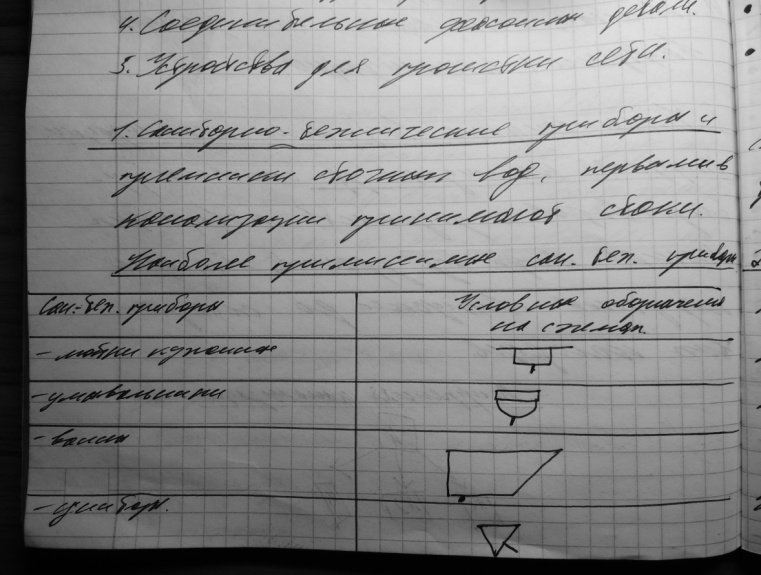 4. Соединительные фасонные детали.
5. Устройства для прочистки сети.
1. Санитарно-технические приборы и
приемники сточных вод, первыми в
канализации принимают стоки.
Наиболее применимые сан. тех. приборы
Сан.-тех. приборы
Условные обозначения
на схемах.
- мойки кухонные
- умывальники
- ванны
- унитазы.